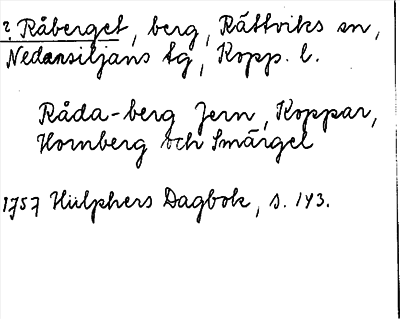 ? Råberget, berg, Rättviks sn,
Nedansiljans tg, Kopp. l.
Råda-berg Jern, Koppar,
Hornberg och Smärgel
1757 Hülphers Dagbok, s. 143.